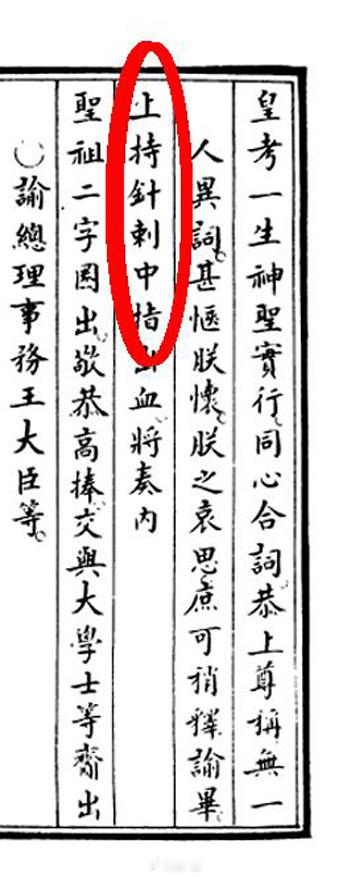 皇考一生神聖實行同心合詞恭上尊稱無一
人異詞甚愜朕懷朕之哀思庶可稍釋諭畢
上持針刺中指出血將奏內
聖祖二字圈出敬恭高捧交與大學士等齎出
○諭總理事務王大臣等